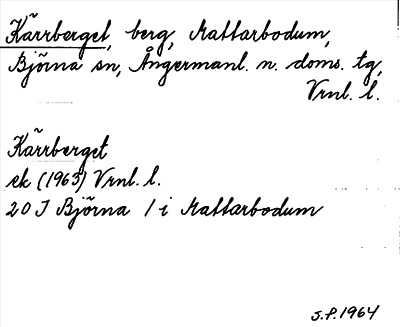 Kärrberget, berg, Mattarbodum,
Björna sn, Ångermanl. n. doms. tg,
Vrnl. l.
Kärrberget
ek (1963) Vrnl. l.
20 J Björna 1 i Mattarbodum
J.P. 1964